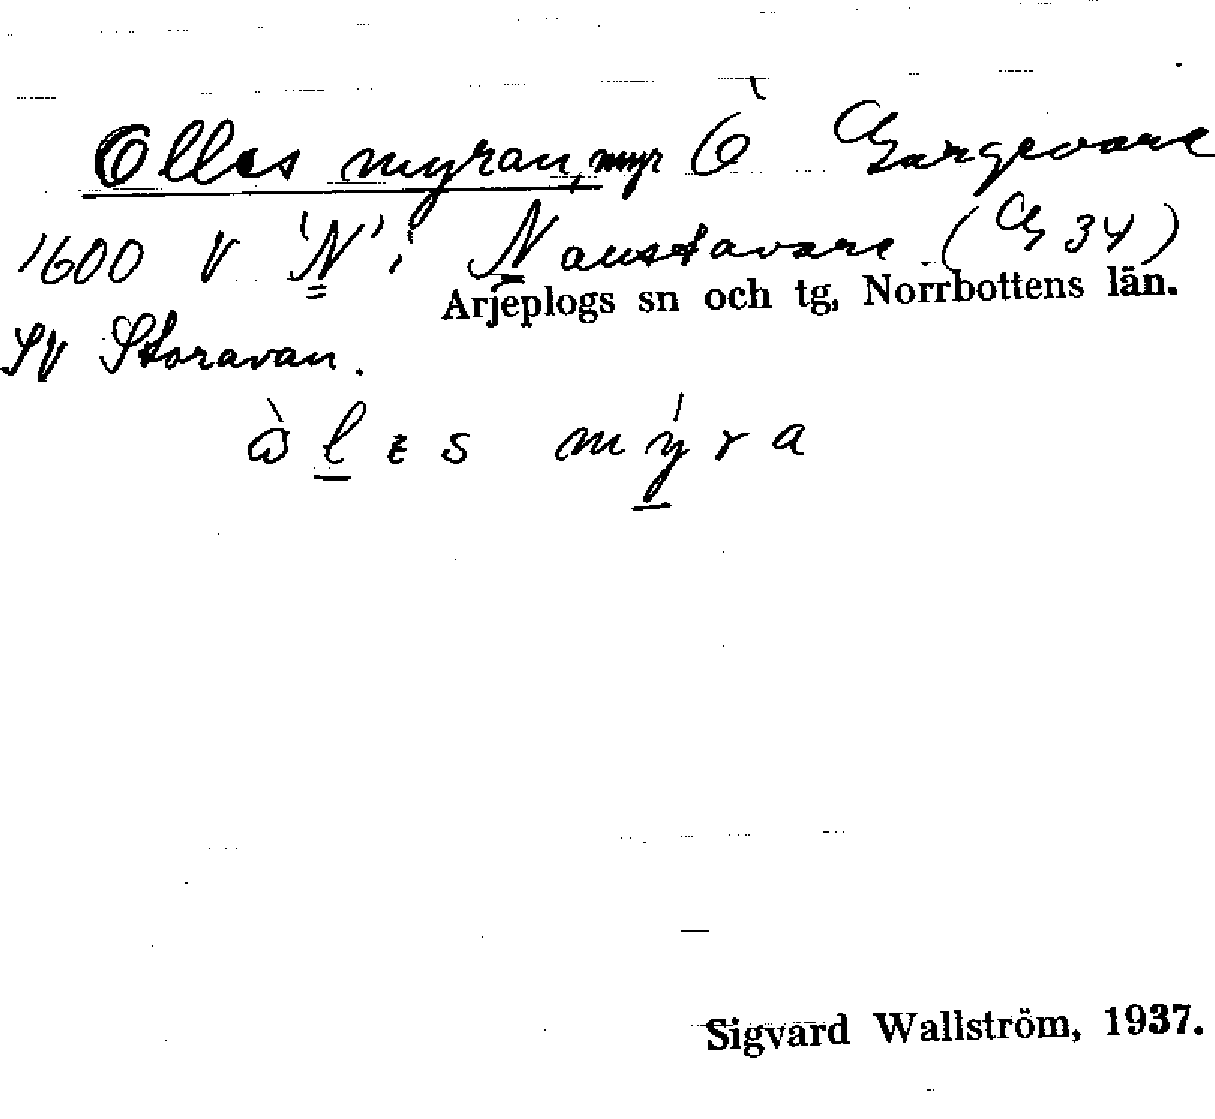 Olles myran, myr Ö Gargevare
1600 V 'N' i Naustavare (G 34)
Arjeplogs sn och tg, Norrbottens län.
SV Storavan.
ò̀lɛs mýra
Sigvard Wallström, 1937.